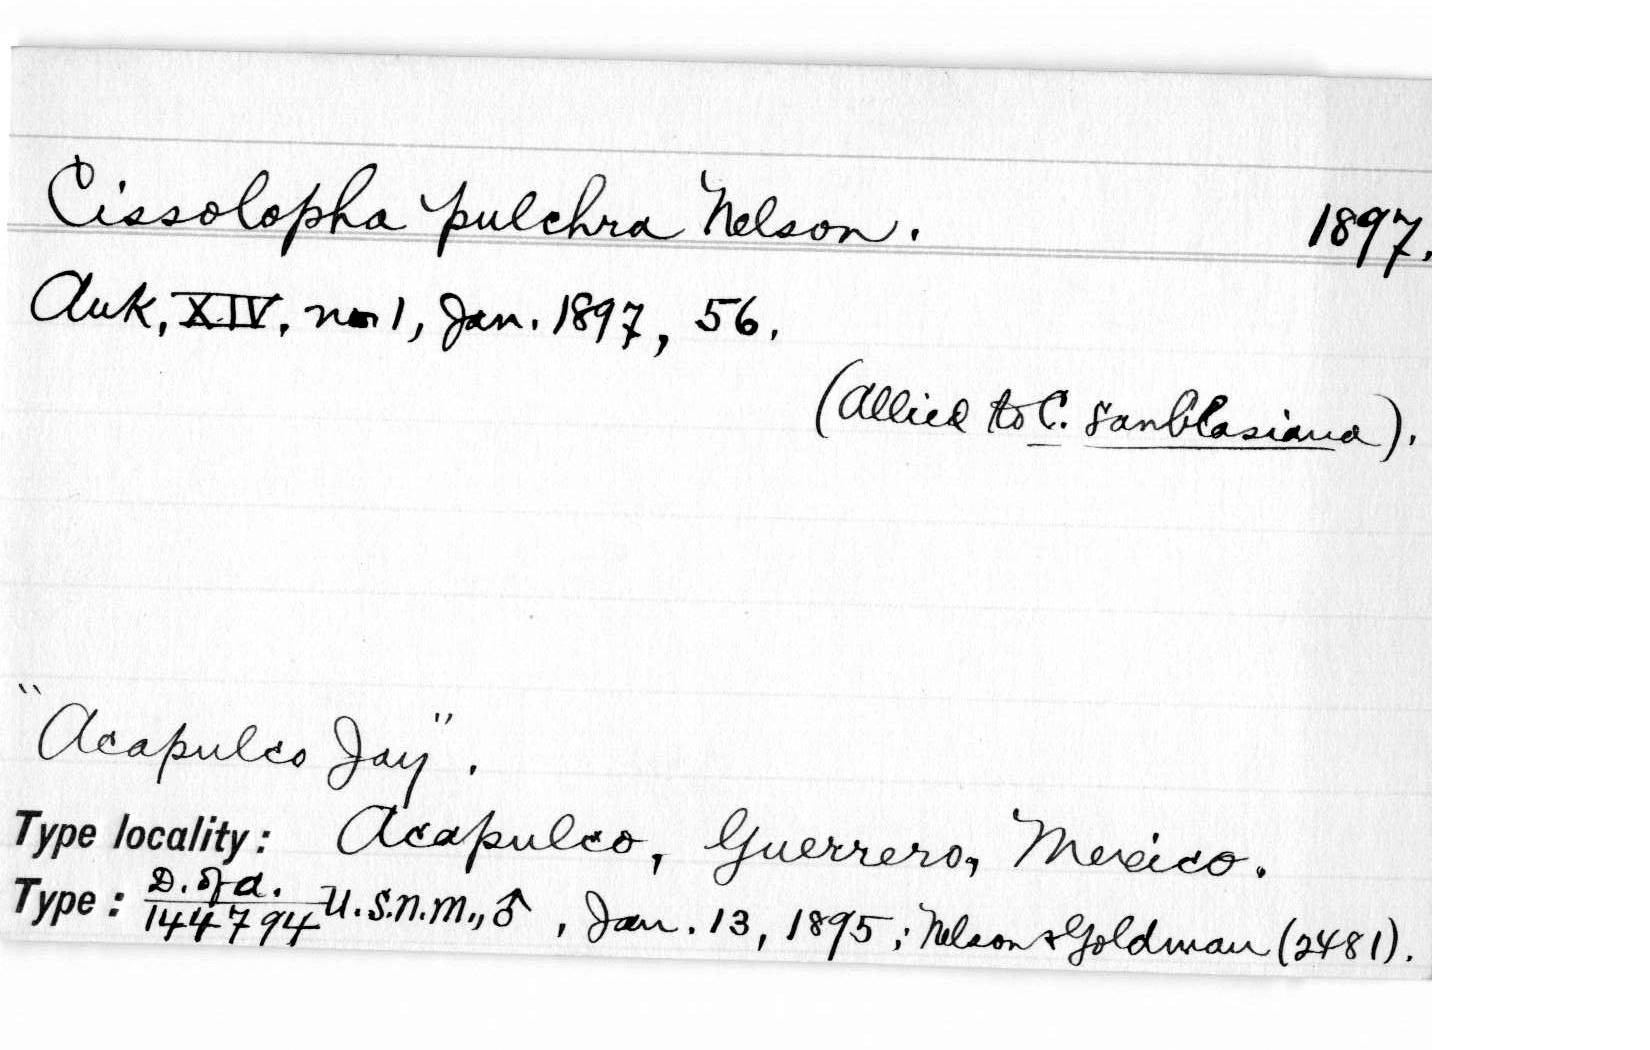 Cissolopha pulchra Nelson. 1897.
Auk, XIV, no 1, Jan. 1897, 56.
(Allied to C. sanblasiana).
"Acapulco Jay".
Type locality: Acapulco, Guerrero, Mexico.
Type: D. of A. / 144794 U.S.N.M., ♂, Jan. 13, 1895; Nelson & Goldman (2481).